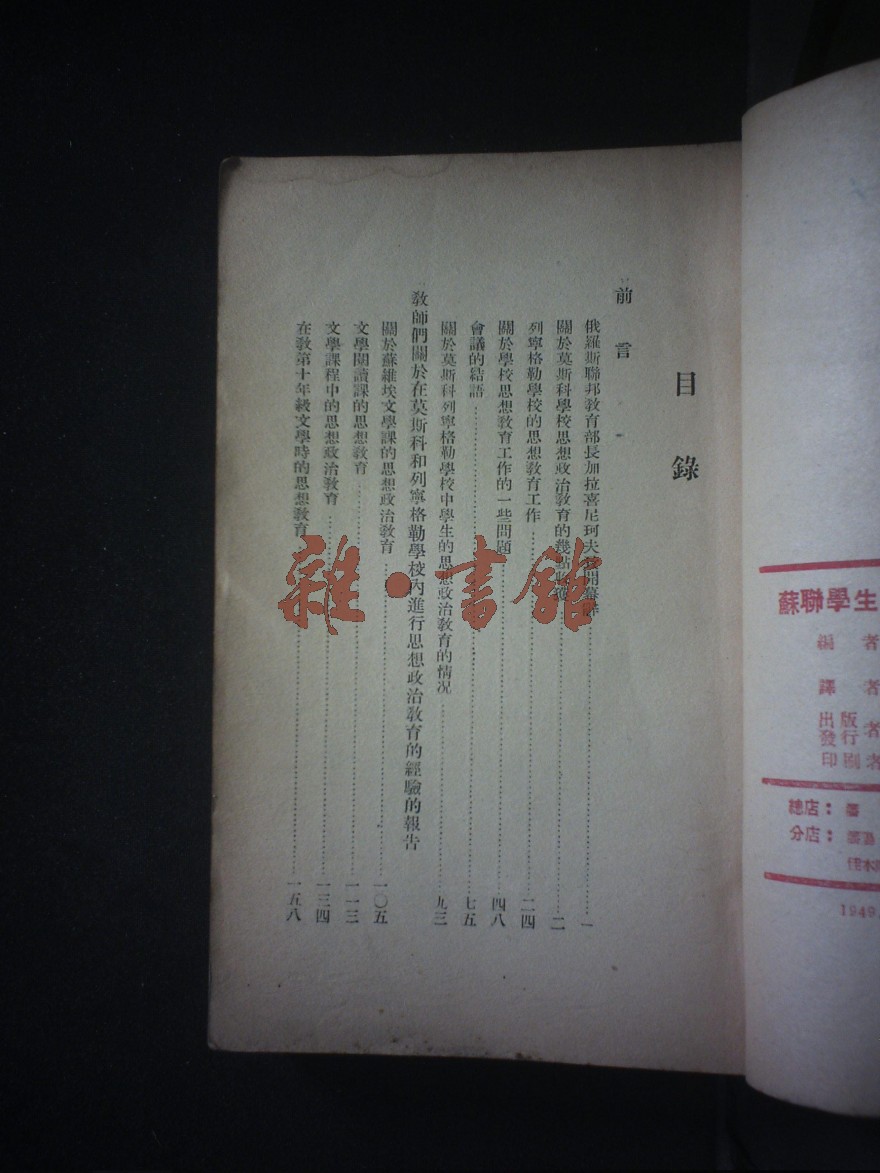 目錄
前言
俄羅斯聯邦教育部長加拉喜尼珂夫致開幕辭 一
關於莫斯科學校思想政治教育的幾點收穫 二
列寧格勒學校的思想教育工作 二四
關於學校思想教育工作的一些問題 四八
會議的結語 七五
關於莫斯科列寧格勒學校中學生的思想政治教育的情况 九三
教師們關於在莫斯科和列寧格勒學校內進行思想政治教育的經驗的報告
關於蘇維埃文學課的思想政治教育 一〇五
文學閱讀課的思想教育 一一三
文學課程中的思想政治教育 一三四
在教第十年級文學時的思想教育 一五八
雜·書館
蘇聯學生
編者
譯者
出版
發行者
印刷者
總店：
分店：
佳木
1949.